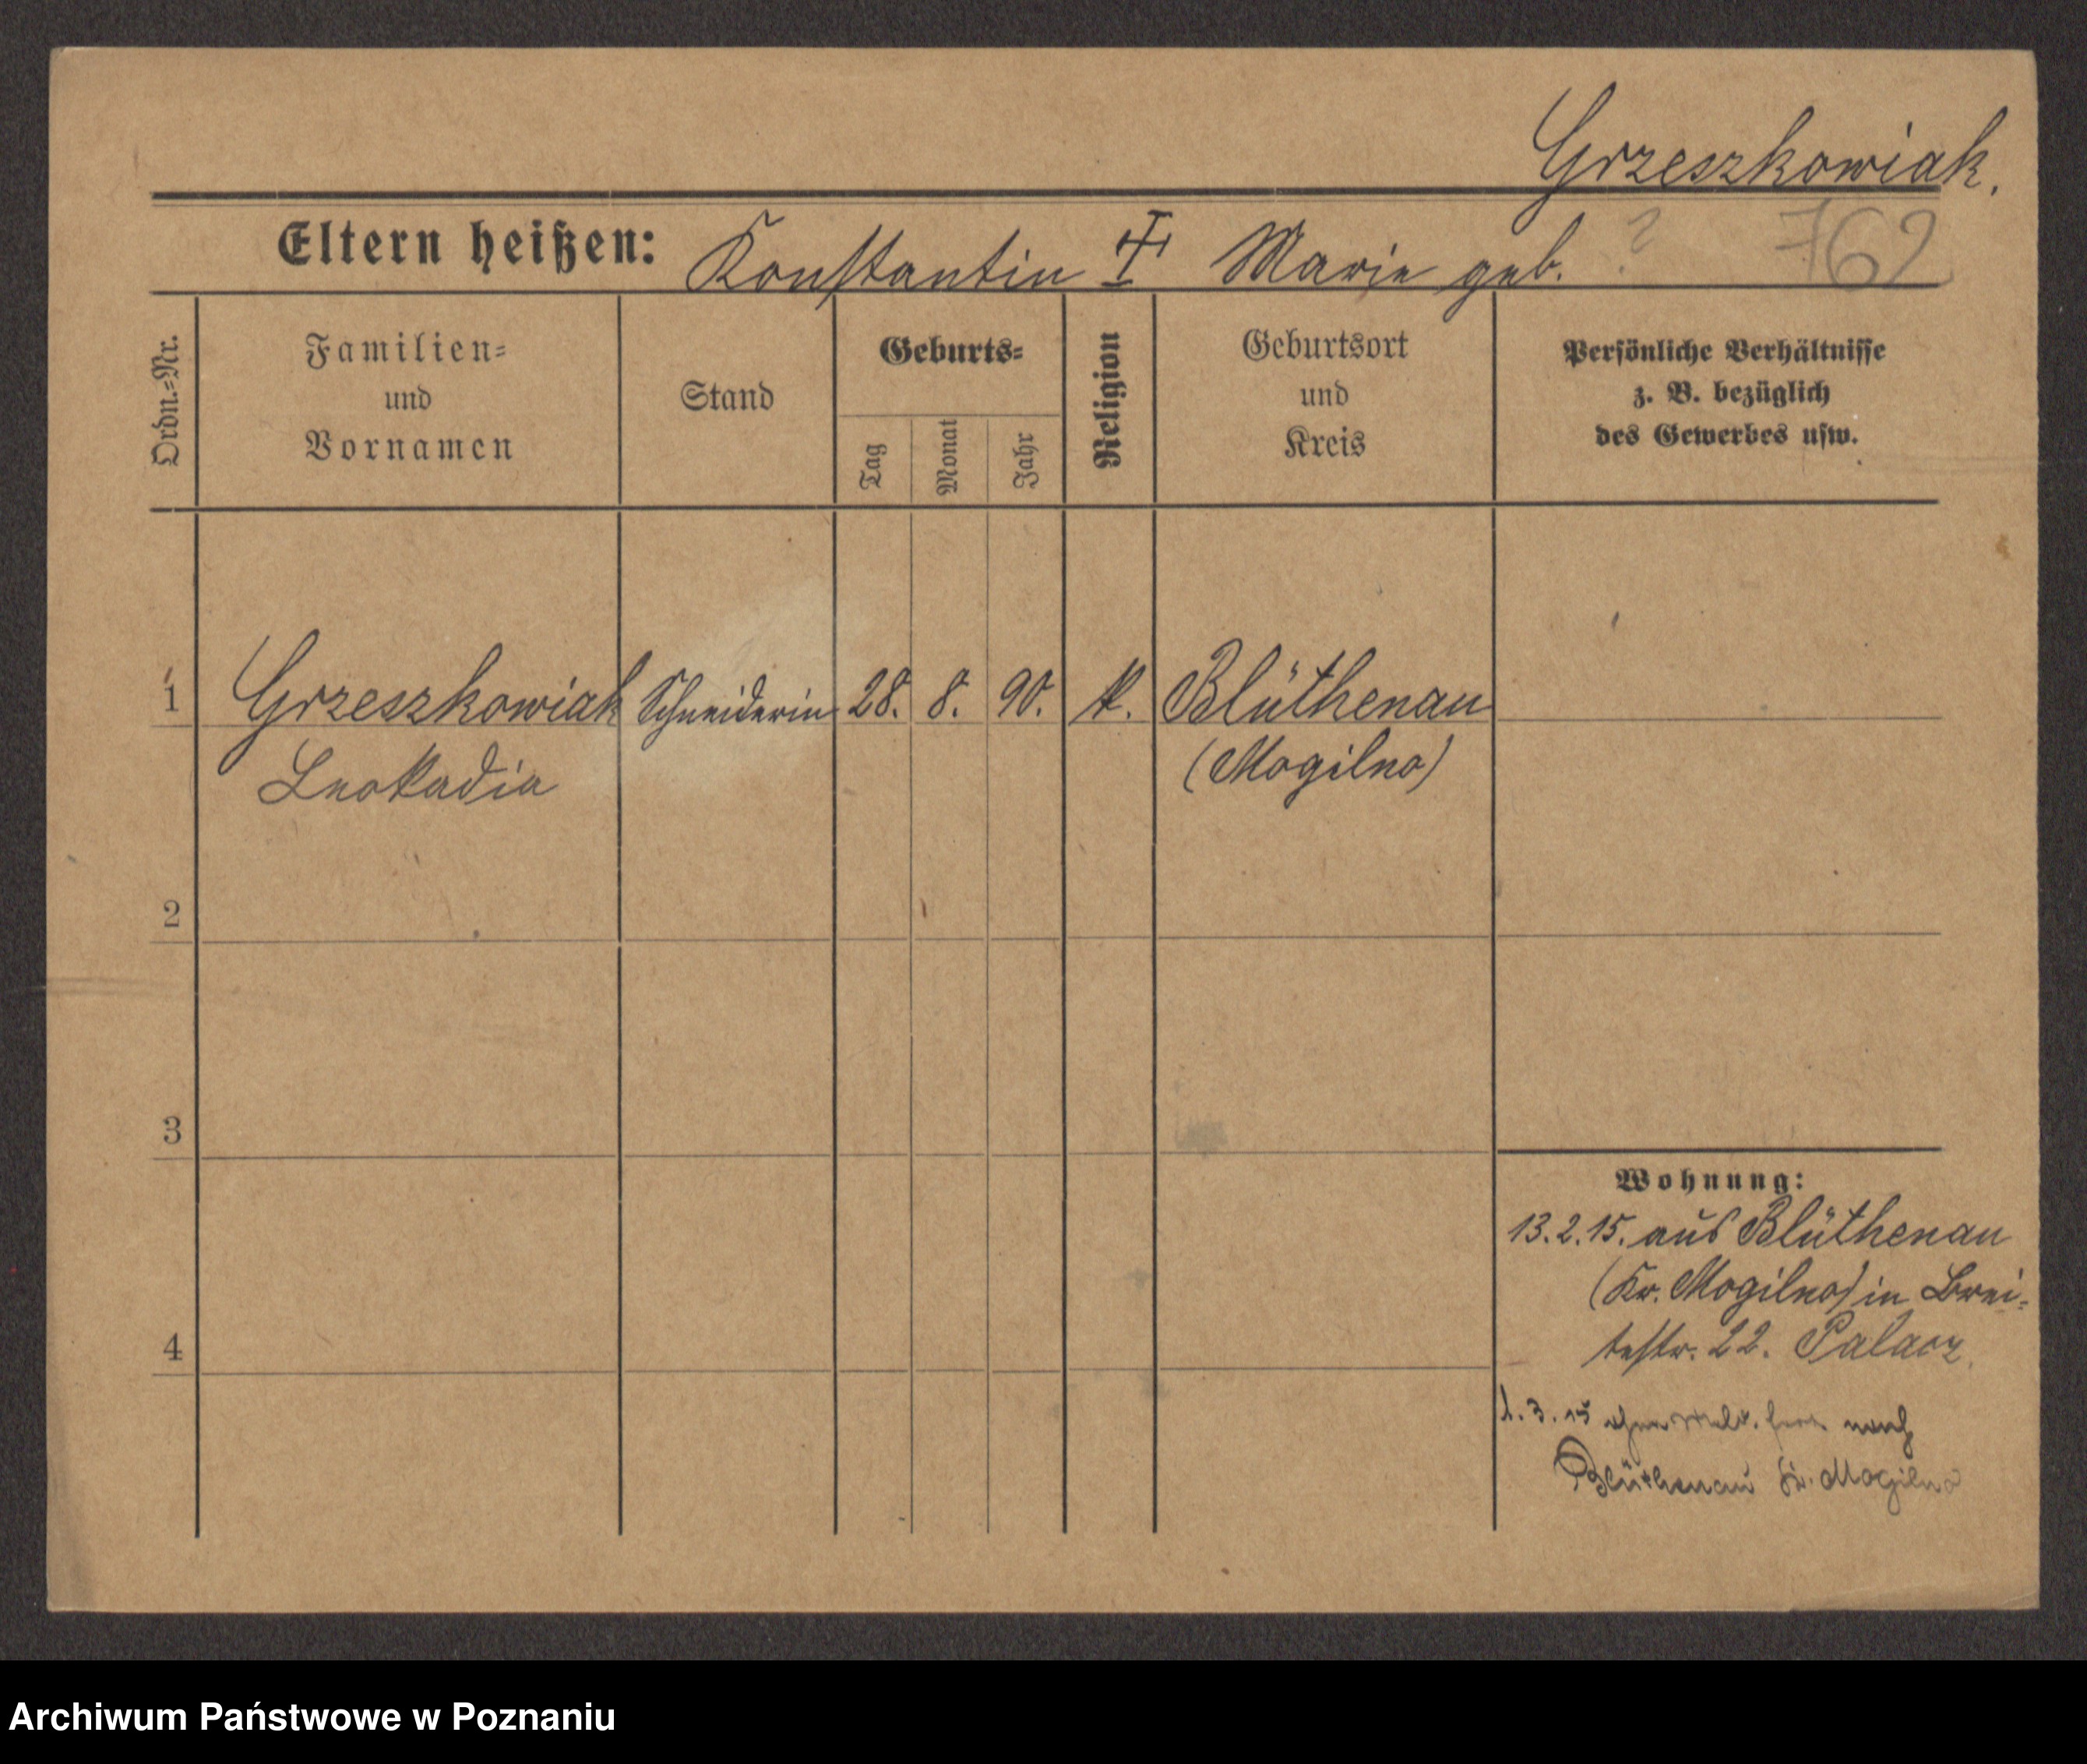 Grzeszkowiak.
Eltern heißen: Konstantin † Marie geb. ? 762
Ordn.=Nr.
Familien=
und
Vornamen
Stand
Geburts=
Tag
Monat
Jahr
Religion
Geburtsort
und
Kreis
Persönliche Verhältnisse
z. B. bezüglich
des Gewerbes usw.
1 Grzeszkowiak Schneiderin 28. 8. 90. k. Blüthenau
Leokadia (Mogilno)
2
3
4
Wohnung:
13.2.15. aus Blüthenau
(Kr. Mogilno) in Brei-
testr. 22. Palacz.
1.3.15 ohne nach
Blüthenau Kr. Mogilno
Archiwum Państwowe w Poznaniu